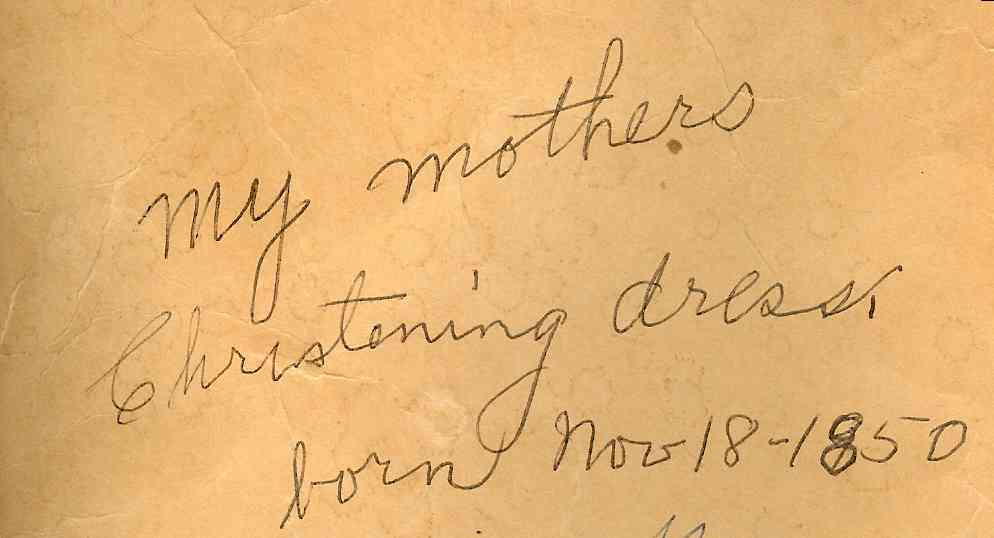 My mothers
Christening dress.
born Nov 18-1850